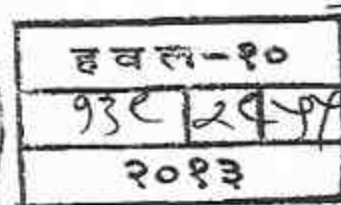 हवल-१०
१३९ २९ ५५
२०१३